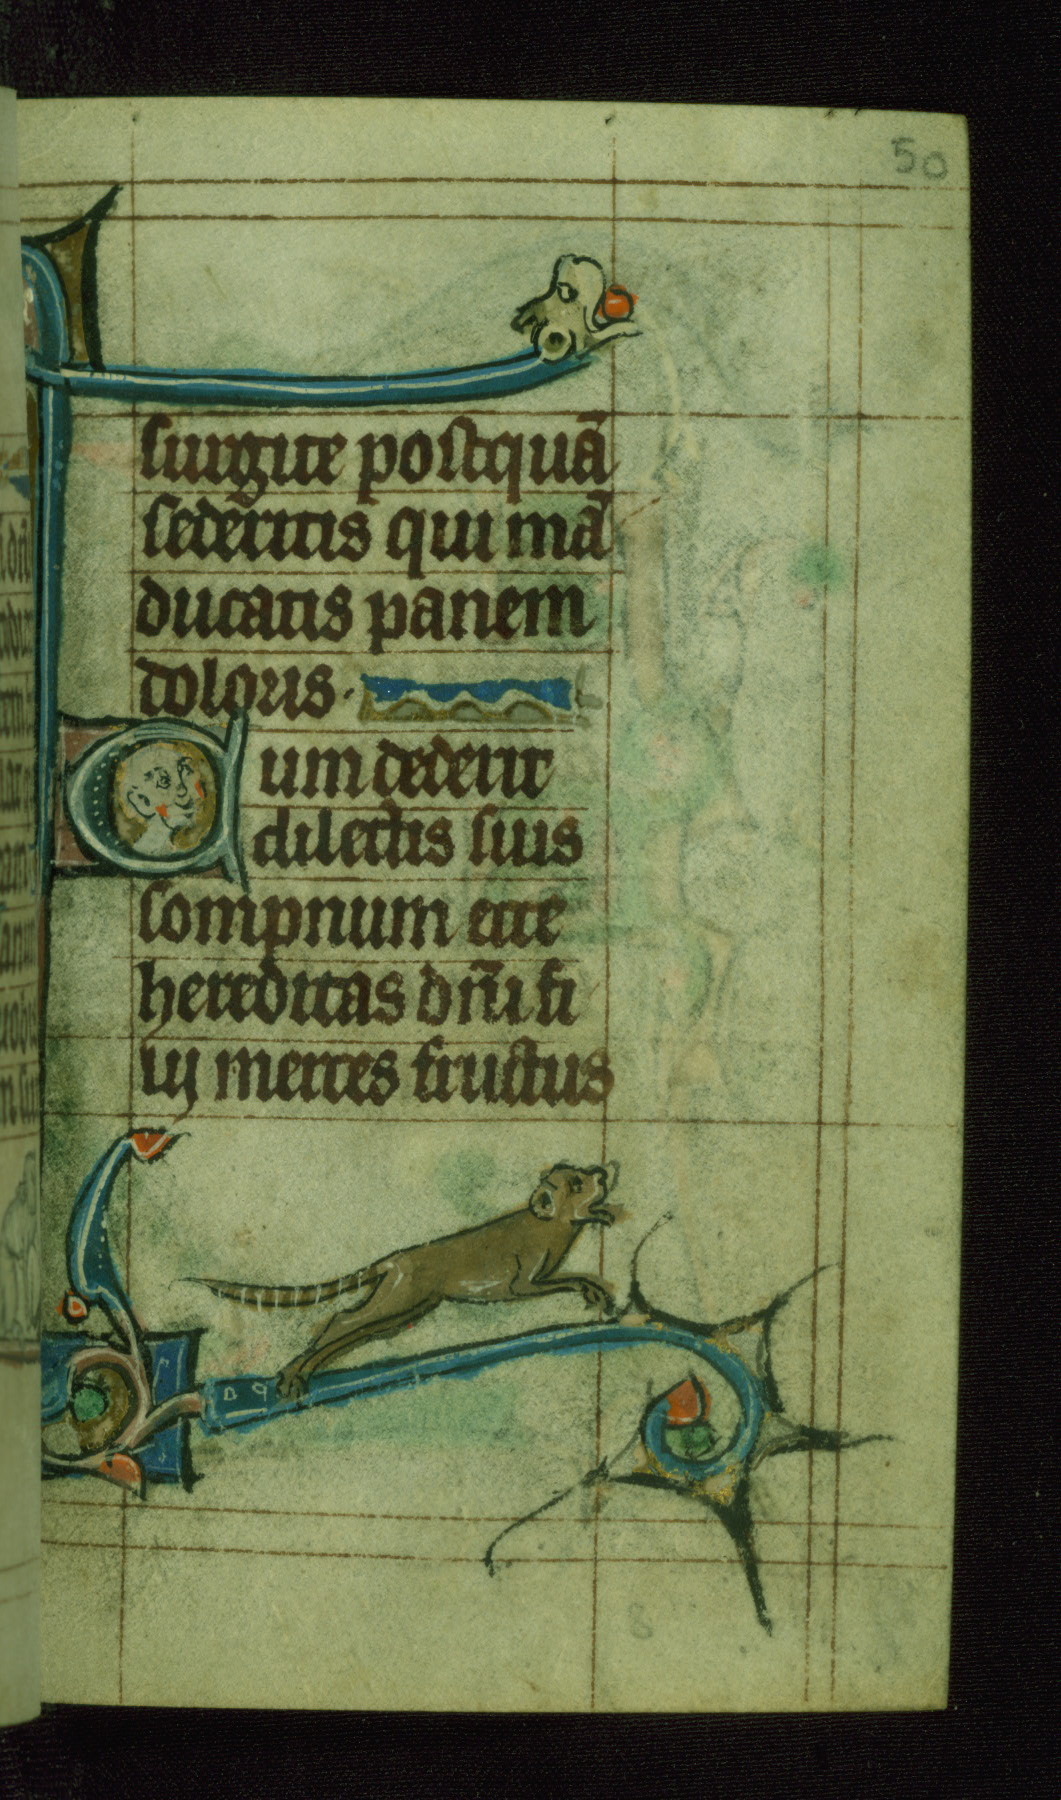 50
surgite postquā
sederitis qui mā
ducatis panem
doloris ·
Cum dederit
dilectis suis
sompnum ecce
hereditas dn̄i fi
lij merces fructus